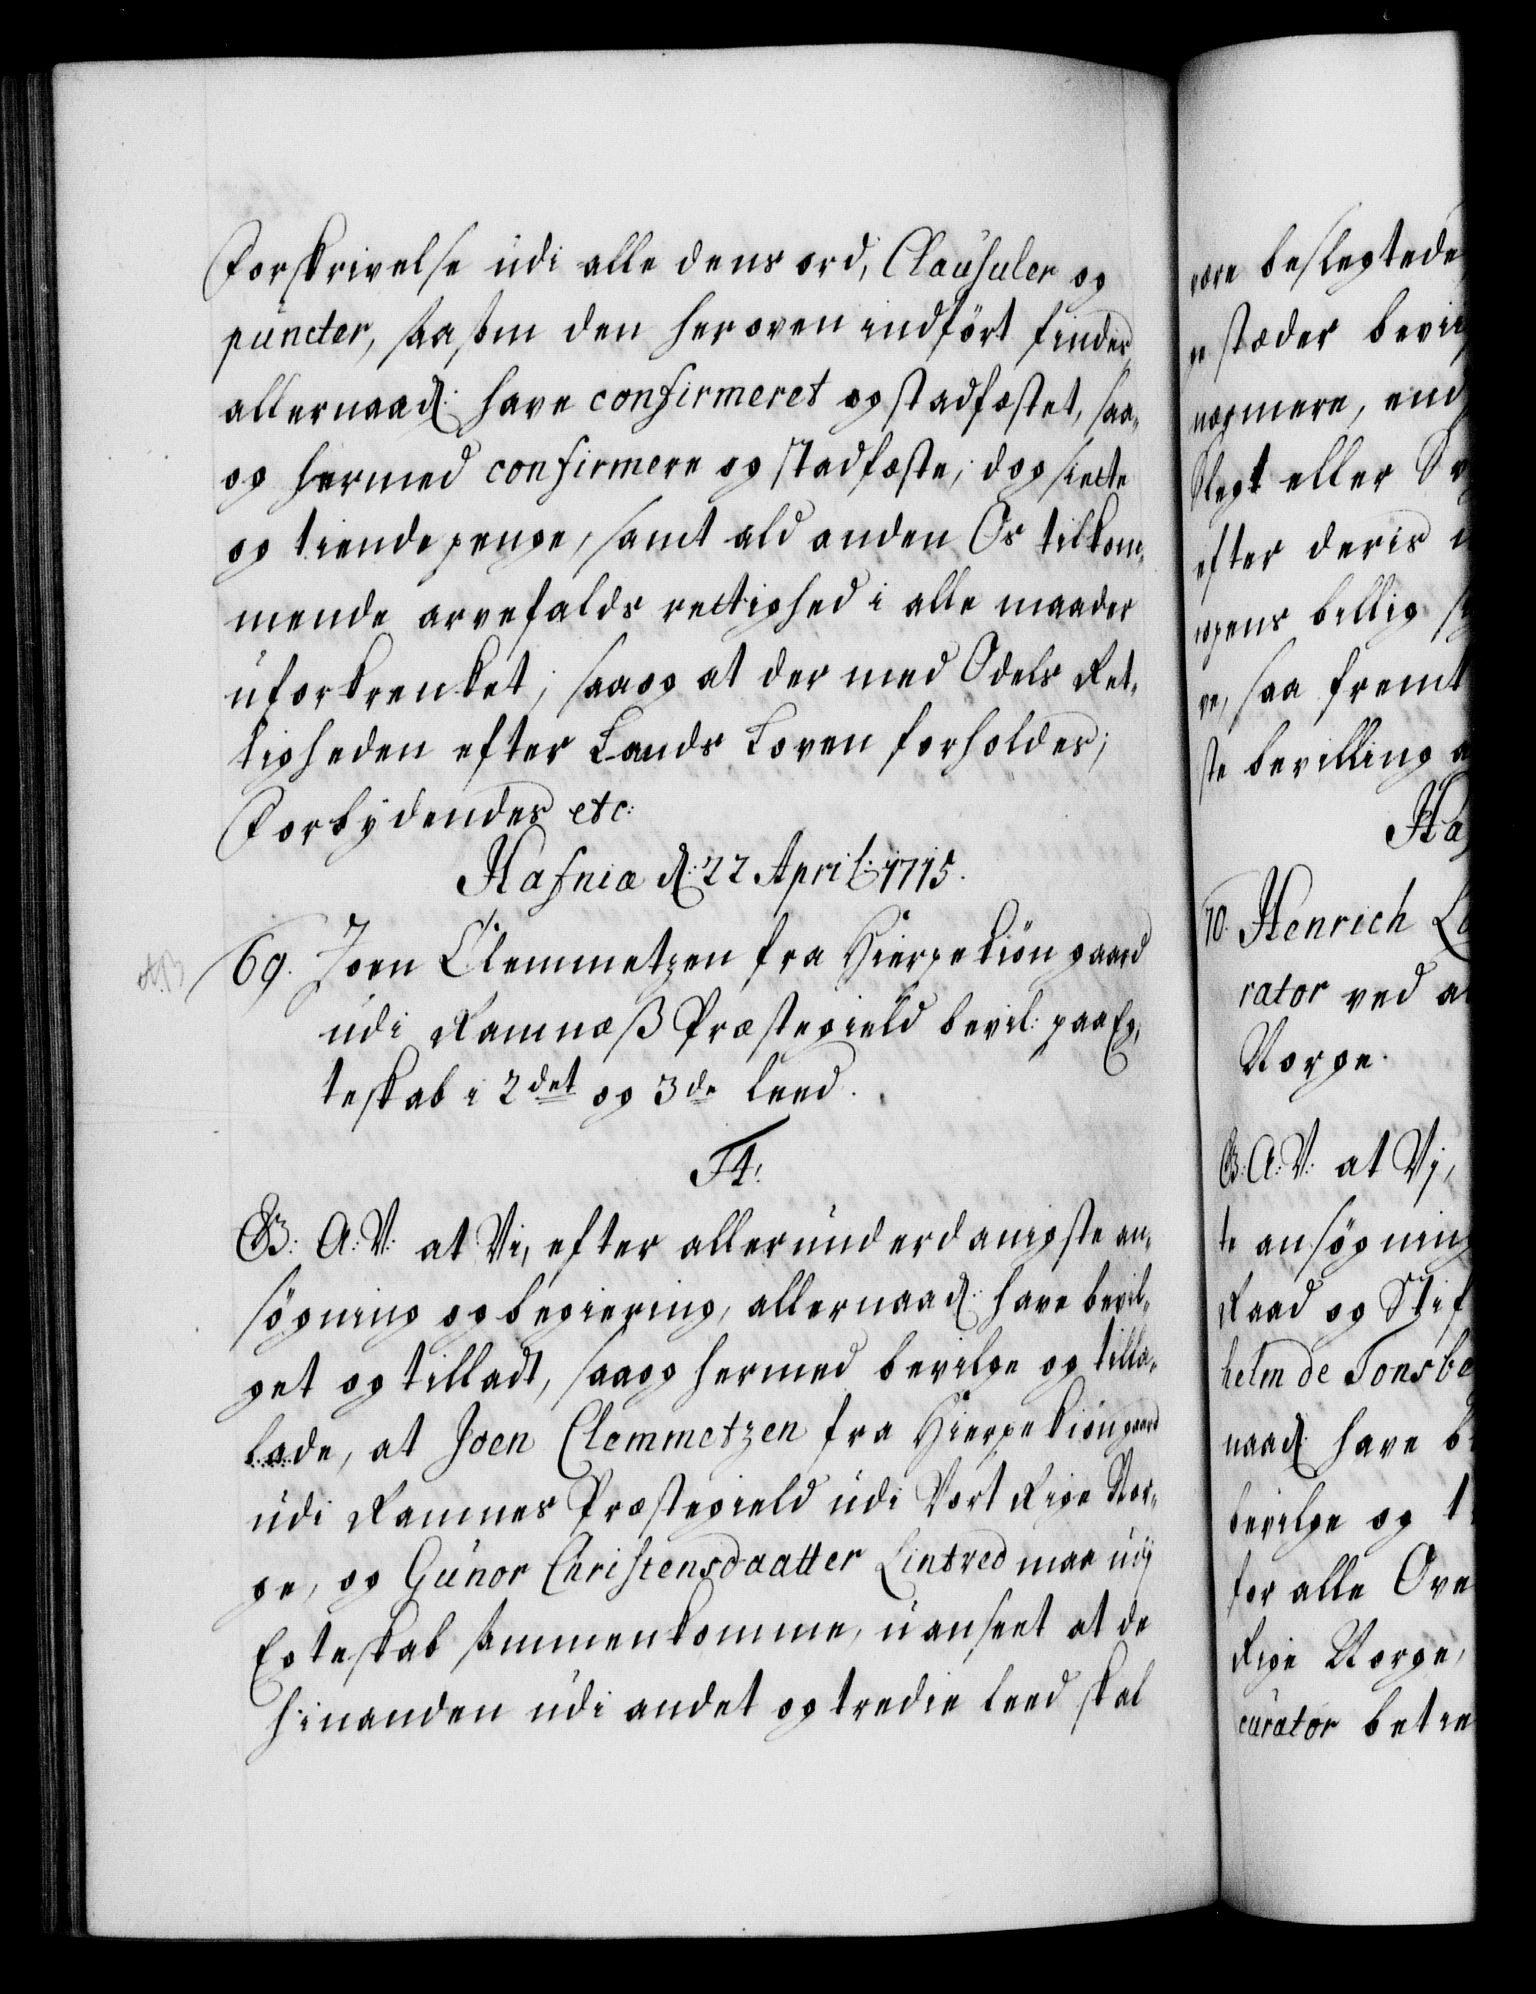 Forskrivelse udi alle dens ord, Clausuler og
puncter, saasom den her oven indført findes,
allernaad: have confirmeret og stadfæstet, saa-
og hermed confirmere og stadfæste; dog siette
og tiende penge, samt ald anden Os tilkom-
mende arvefalds rettighed i alle maader
uforkrenket; saa og at der med Odels Ret-
tigheden efter Lands Loven forholdes;
Forbydendes etc:
Hafniæ d: 22 April: 1715.
69. Joen Clemmetzen fra Hierpekiøn gaard
udi Ramnæß Præstegield bevil: paa Eg-
teskab i 2det og 3de leed.
F4:
G: A: V: at Vi, efter allerunderdanigste an-
søgning og begiering, allernaad: have bevil-
get og tilladt, saa og hermed bevilge og tilla-
lade, at Joen Clemmetzen fra Hierpekiøn gaard
udi Ramnes Præstegield udi Vort Rige Nor-
ge, og Gunor Christensdaatter Lintved maa udj
Egteskab sammenkomme, uanseet at de
hinanden udi andet og tredie leed skal
være beslegtede
stæder bevil
nogmere, end
Slegt eller Sv
efter deris
ogens billig
ve, saa fremt
ste bevilling
Haf
70. Henrich
rator ved
Norge.
G: A: V: at Vj,
te ansøgning
Raad og Stif
helm de Tonsbe
naad: have
bevilge og t
for alle Ove
Rige Norge,
curator betie